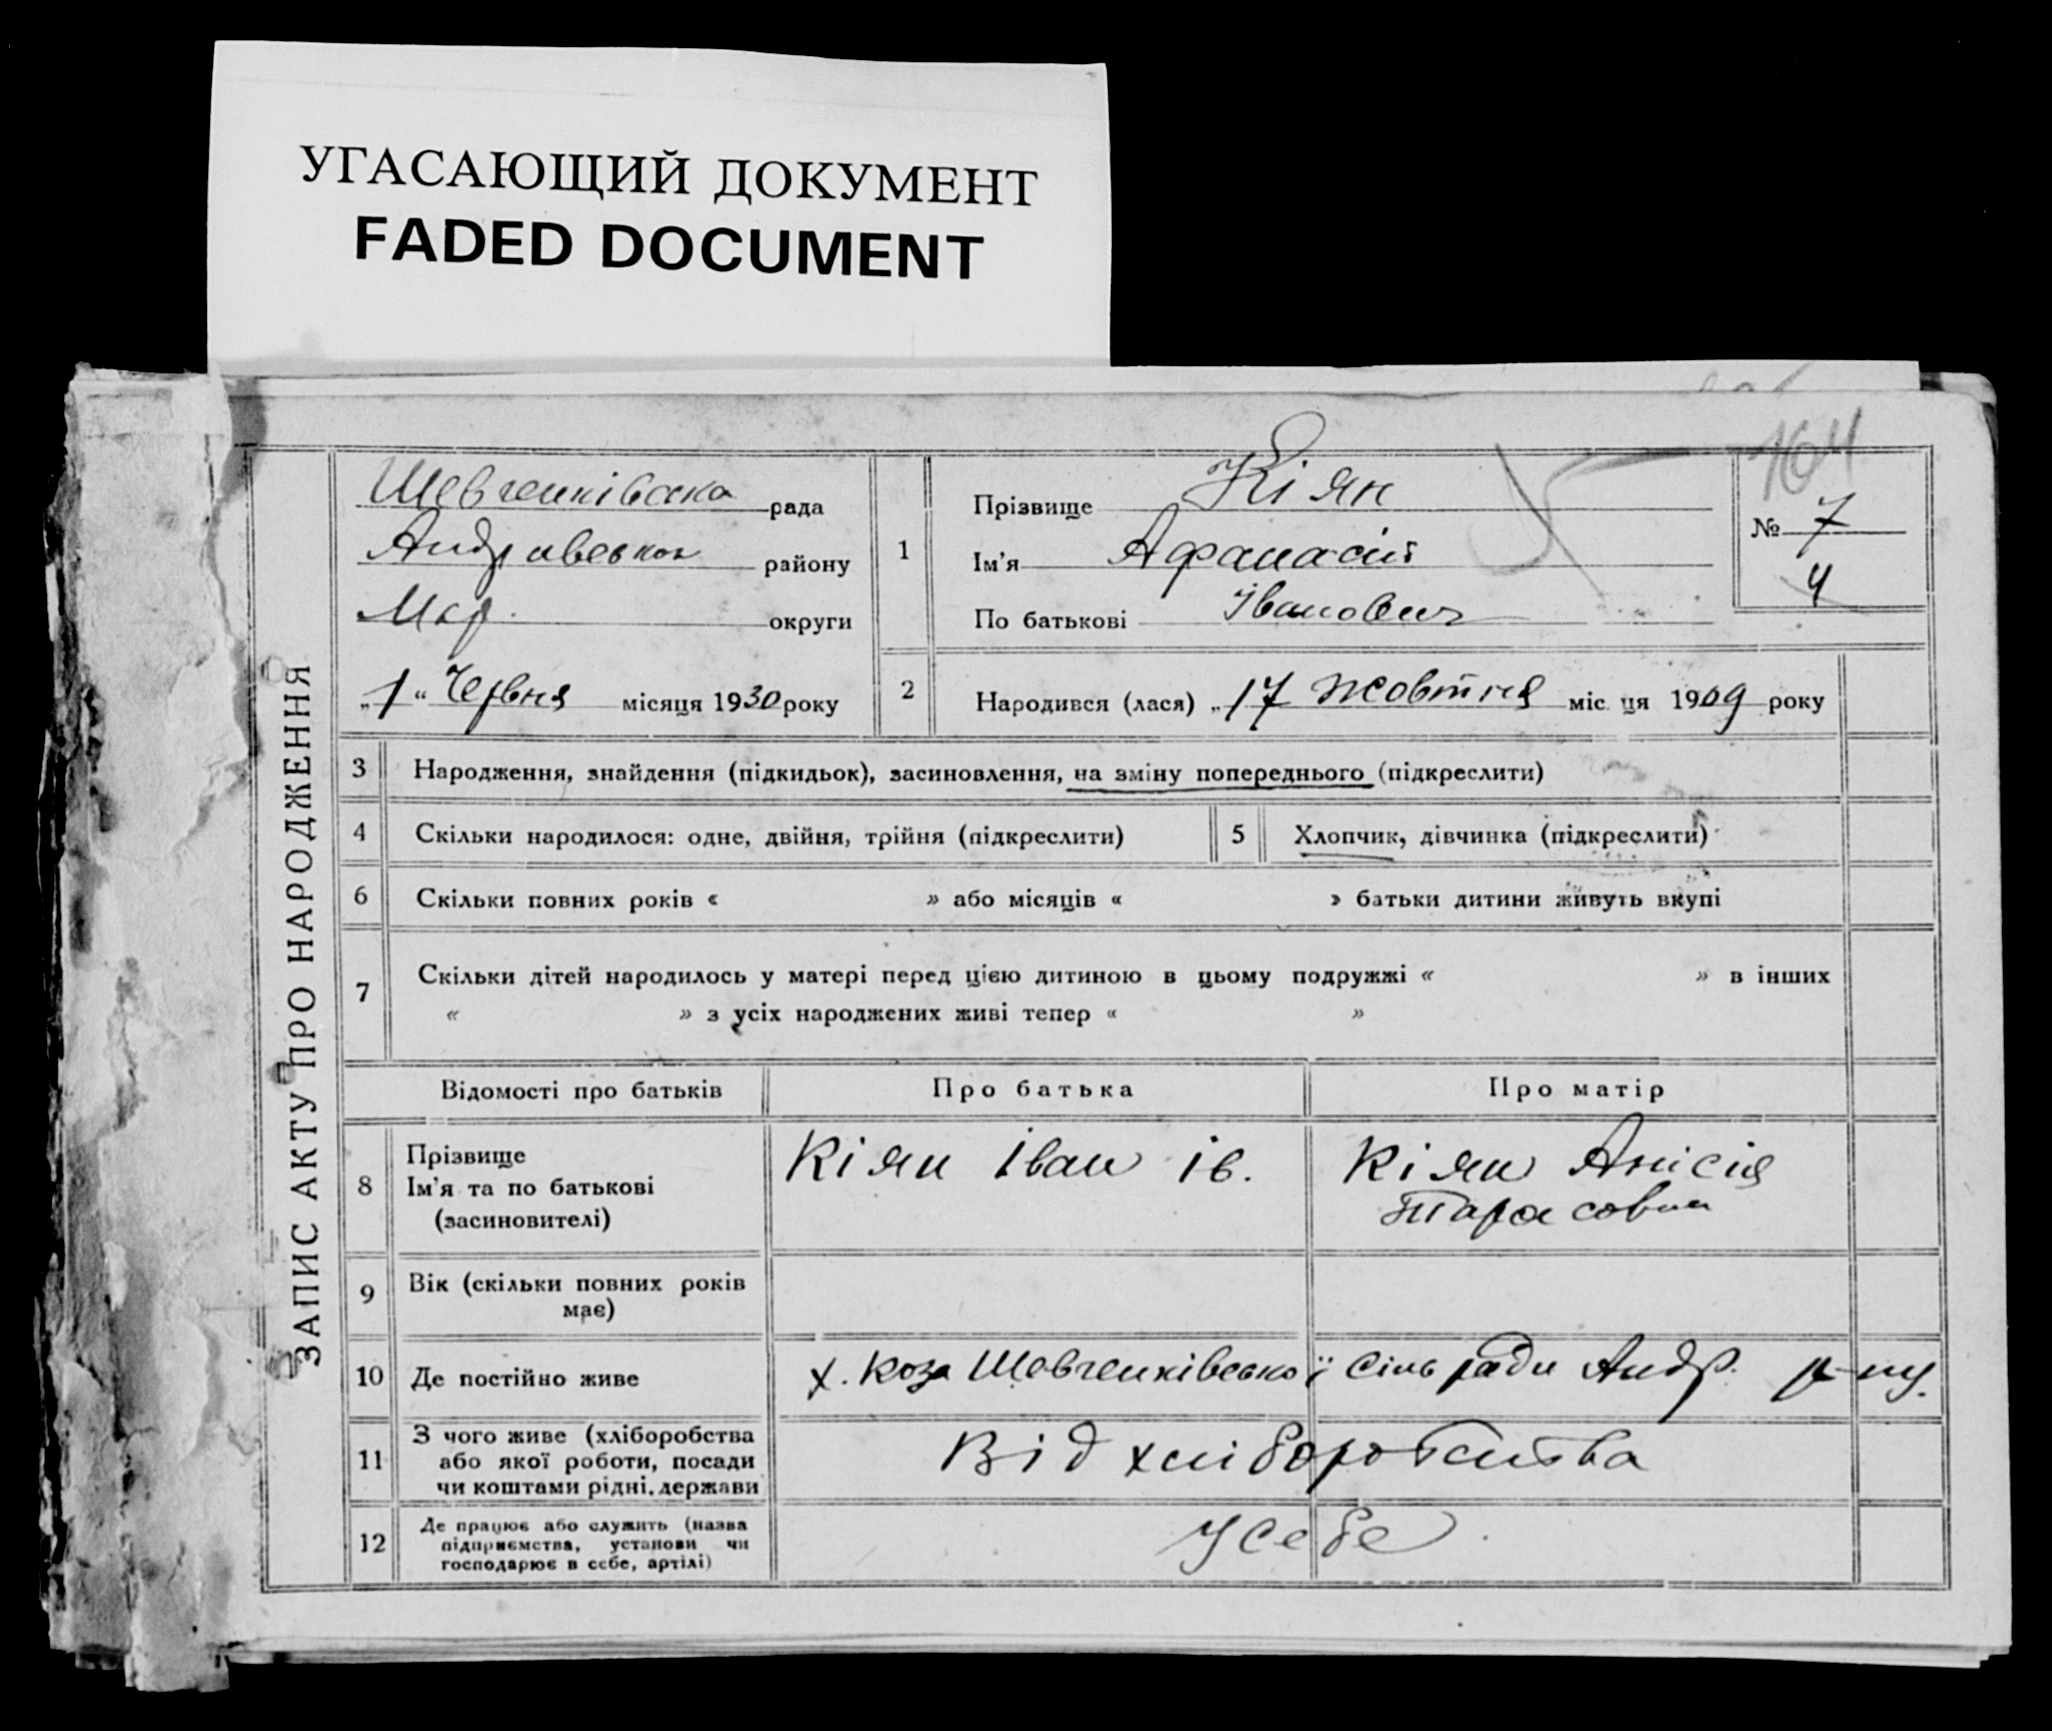 УГАСАЮЩИЙ ДОКУМЕНТ
FADED DOCUMENT
164
ЗАПИС АКТУ ПРО НАРОДЖЕННЯ
Шевченківська рада
Андріївськ району
Мар. округи
„1“ Червня місяця 1930 року
1
Прізвище Кіян
Ім'я Афанасій
По батькові Іванович
№ 7
4
2
Народився (лася) „17 Жовтня міс ця 1909 року
3 Народження, знайдення (підкидьок), засиновлення, на зміну попереднього (підкреслити)
4 Скільки народилося: одне, двійня, трійня (підкреслити)
5 Хлопчик, дівчинка (підкреслити)
6 Скільки повних років « » або місяців « » батьки дитини живуть вкупі
7 Скільки дітей народилось у матері перед цією дитиною в цьому подружжі « » в інших
« » з усіх народжених живі тепер « »
Відомості про батьків Про батька Про матір
8 Прізвище
Ім'я та по батькові
(засиновителі)
Кіян Іван Ів.
Кіян Анісія
Тарасовна
9 Вік (скільки повних років
має)
10 Де постійно живе х. Коза Шевченківської сільради Андр. р-ну.
11 З чого живе (хліборобства
або якої роботи, посади
чи коштами рідні, держави
Від хліборобства
12 Де працює або служить (назва
підприємства, установи чи
господарює в себе, артілі)
У себе